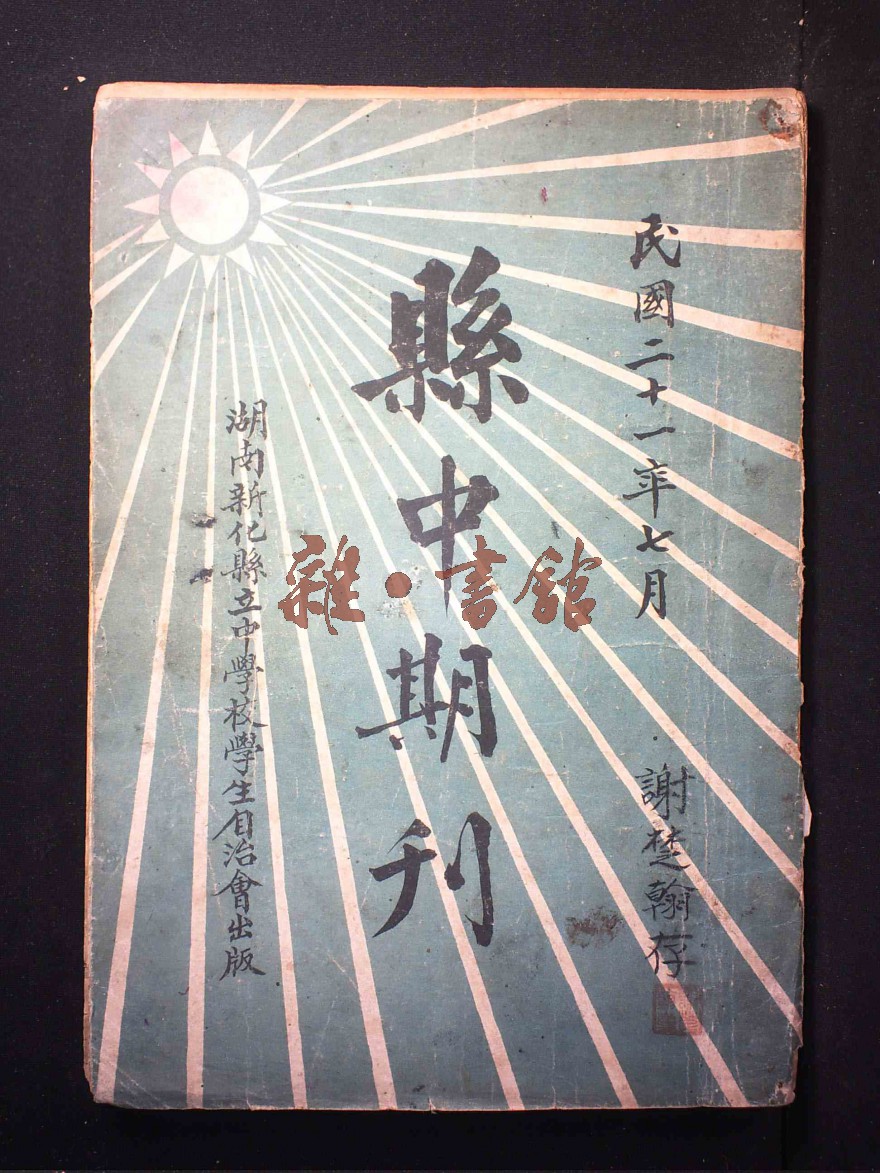 民國二十一年七月
謝楚翰存
縣中期刊
湖南新化縣立中學校學生自治會出版
雜·書館